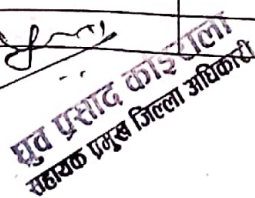 ध्रुव प्रसाद कोइराला
सहायक प्रमुख जिल्ला अधिकारी